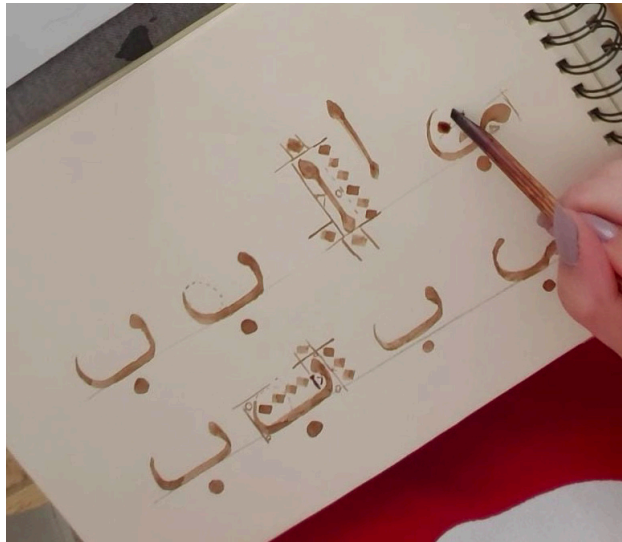 ب ا ا ب ب
ب ب ب ب